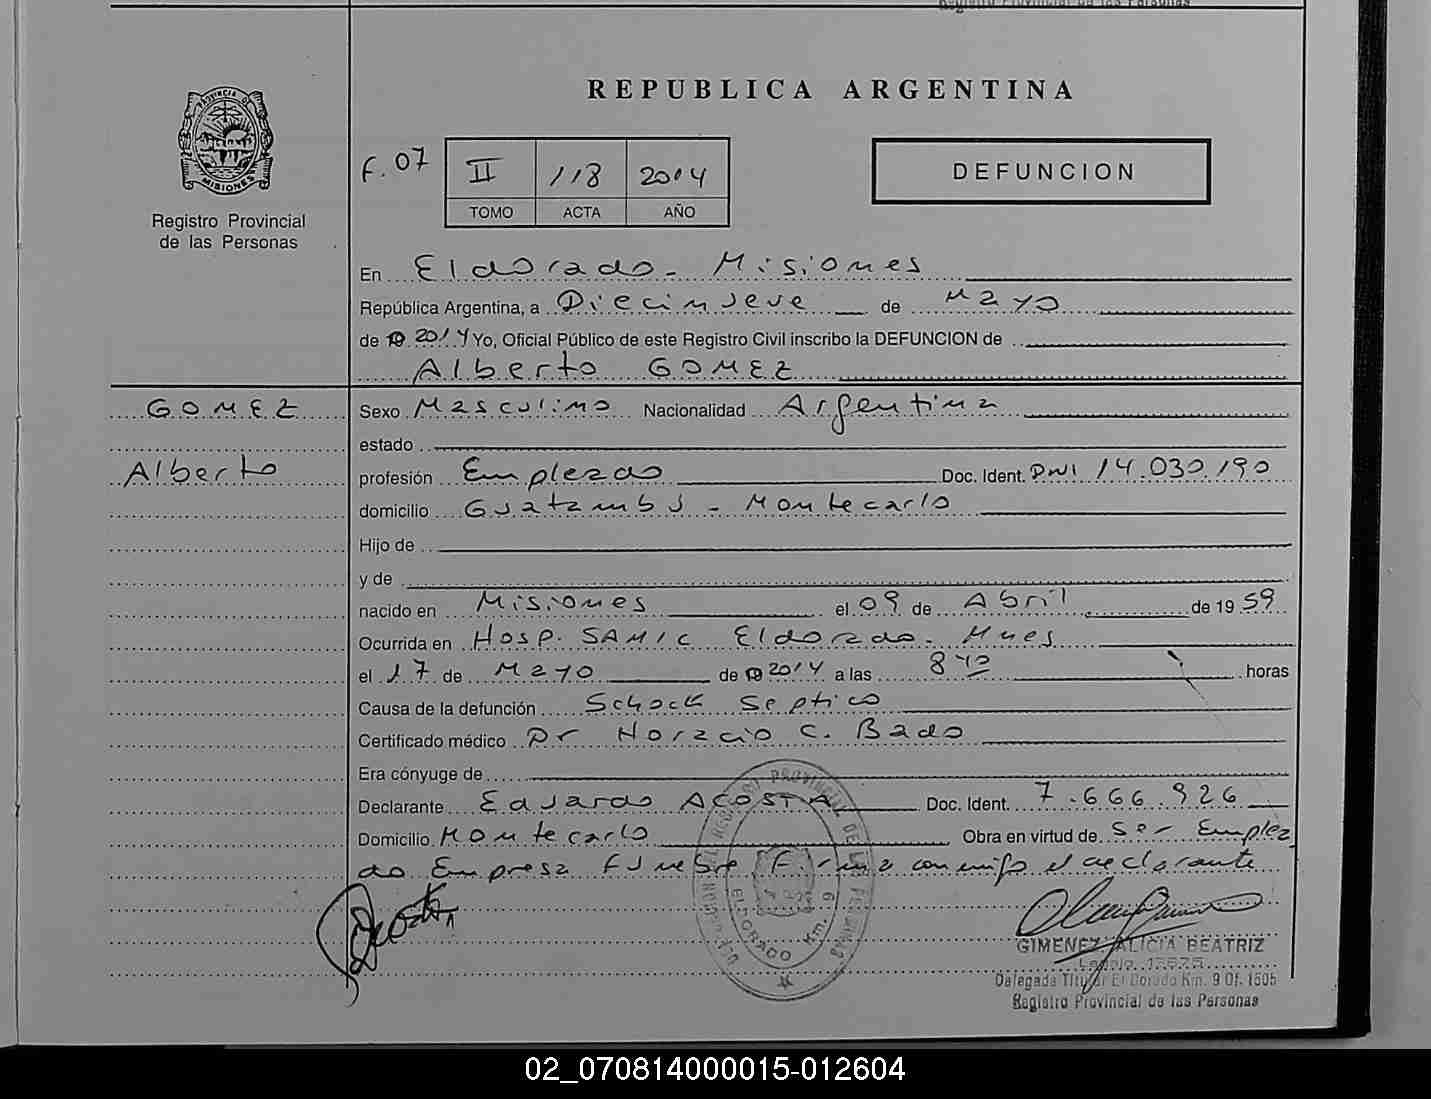 Registro Provincial de las Personas
REPUBLICA ARGENTINA
PROVINCIA DE
MISIONES
Registro Provincial
de las Personas
F. 07 II 118 2014
TOMO ACTA AÑO
DEFUNCION
En Eldorado - Misiones
República Argentina, a Diecinueve de Mayo
de 2014 Yo, Oficial Público de este Registro Civil inscribo la DEFUNCION de
Alberto GOMEZ
GOMEZ
Alberto
Sexo Masculino Nacionalidad Argentina
estado
profesión Empleado Doc. Ident. DNI 14.030.190
domicilio Guatambú - Montecarlo
Hijo de
y de
nacido en Misiones el 09 de Abril de 19 59
Ocurrida en Hosp. SAMIC Eldorado - Mnes
el 17 de Mayo de 2014 a las 8 40 horas
Causa de la defunción Schock Septico
Certificado médico Dr Horacio C. Bado
Era cónyuge de
Declarante Eduardo ACOSTA Doc. Ident. 7.666.926
Domicilio Montecarlo Obra en virtud de Ser Emplea
do Empresa Funebre, Firma conmigo el declarante
DELEGACION DEL REGISTRO PROVINCIAL DE LAS PERSONAS
ELDORADO Km. 9
GIMENEZ ALICIA BEATRIZ
Legajo
Delegada Titular El Dorado Km. 9 Of. 1505
Registro Provincial de las Personas
02_070814000015-012604